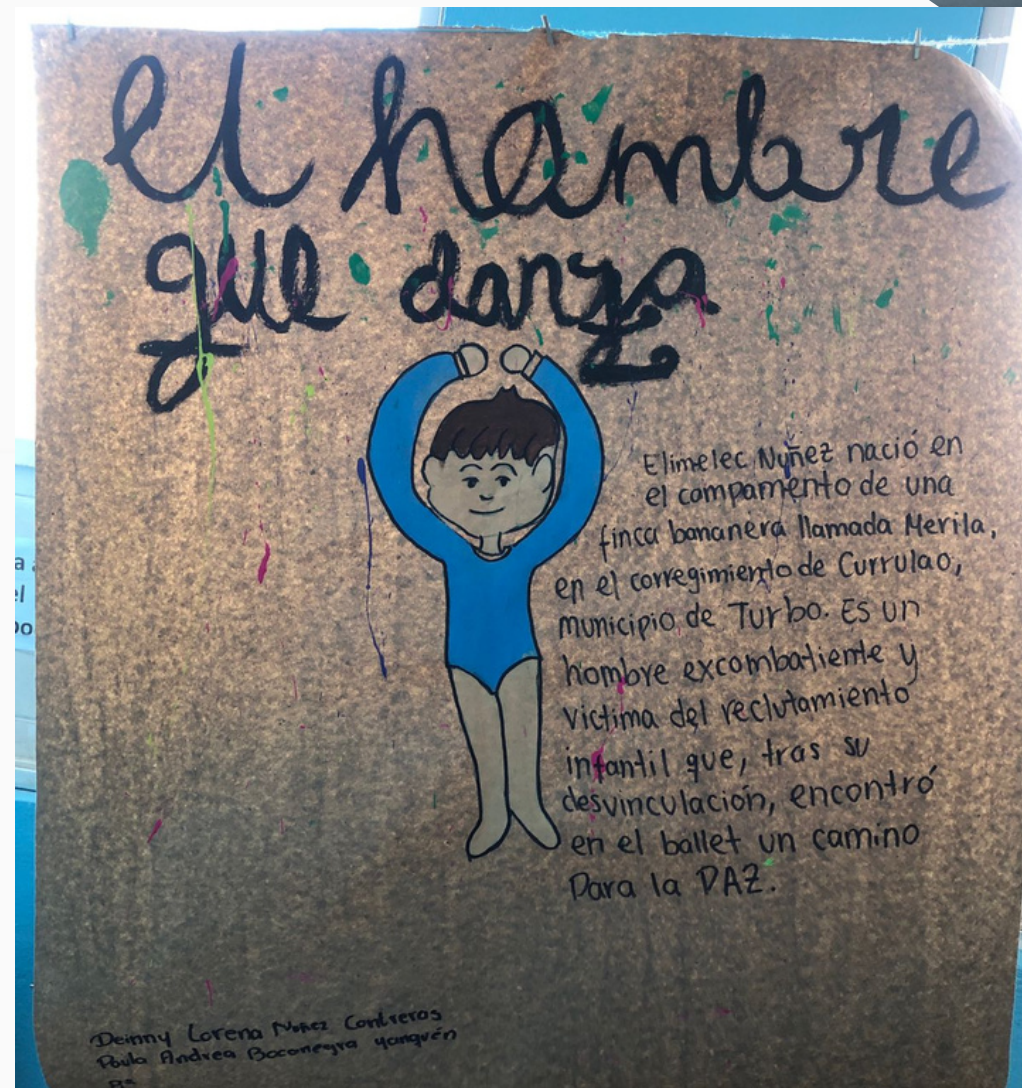 el hombre
que danza
Elimelec Nuñez nació en
el campamento de una
finca bananera llamada Merila,
en el corregimiento de Currulao,
municipio de Turbo. Es un
hombre excombatiente y
victima del reclutamiento
infantil que, tras su
desvinculación, encontró
en el ballet un camino
Para la PAZ.
Deinny Lorena Nuñez Contreras
Paula Andrea Bocanegra yanguén
a
el